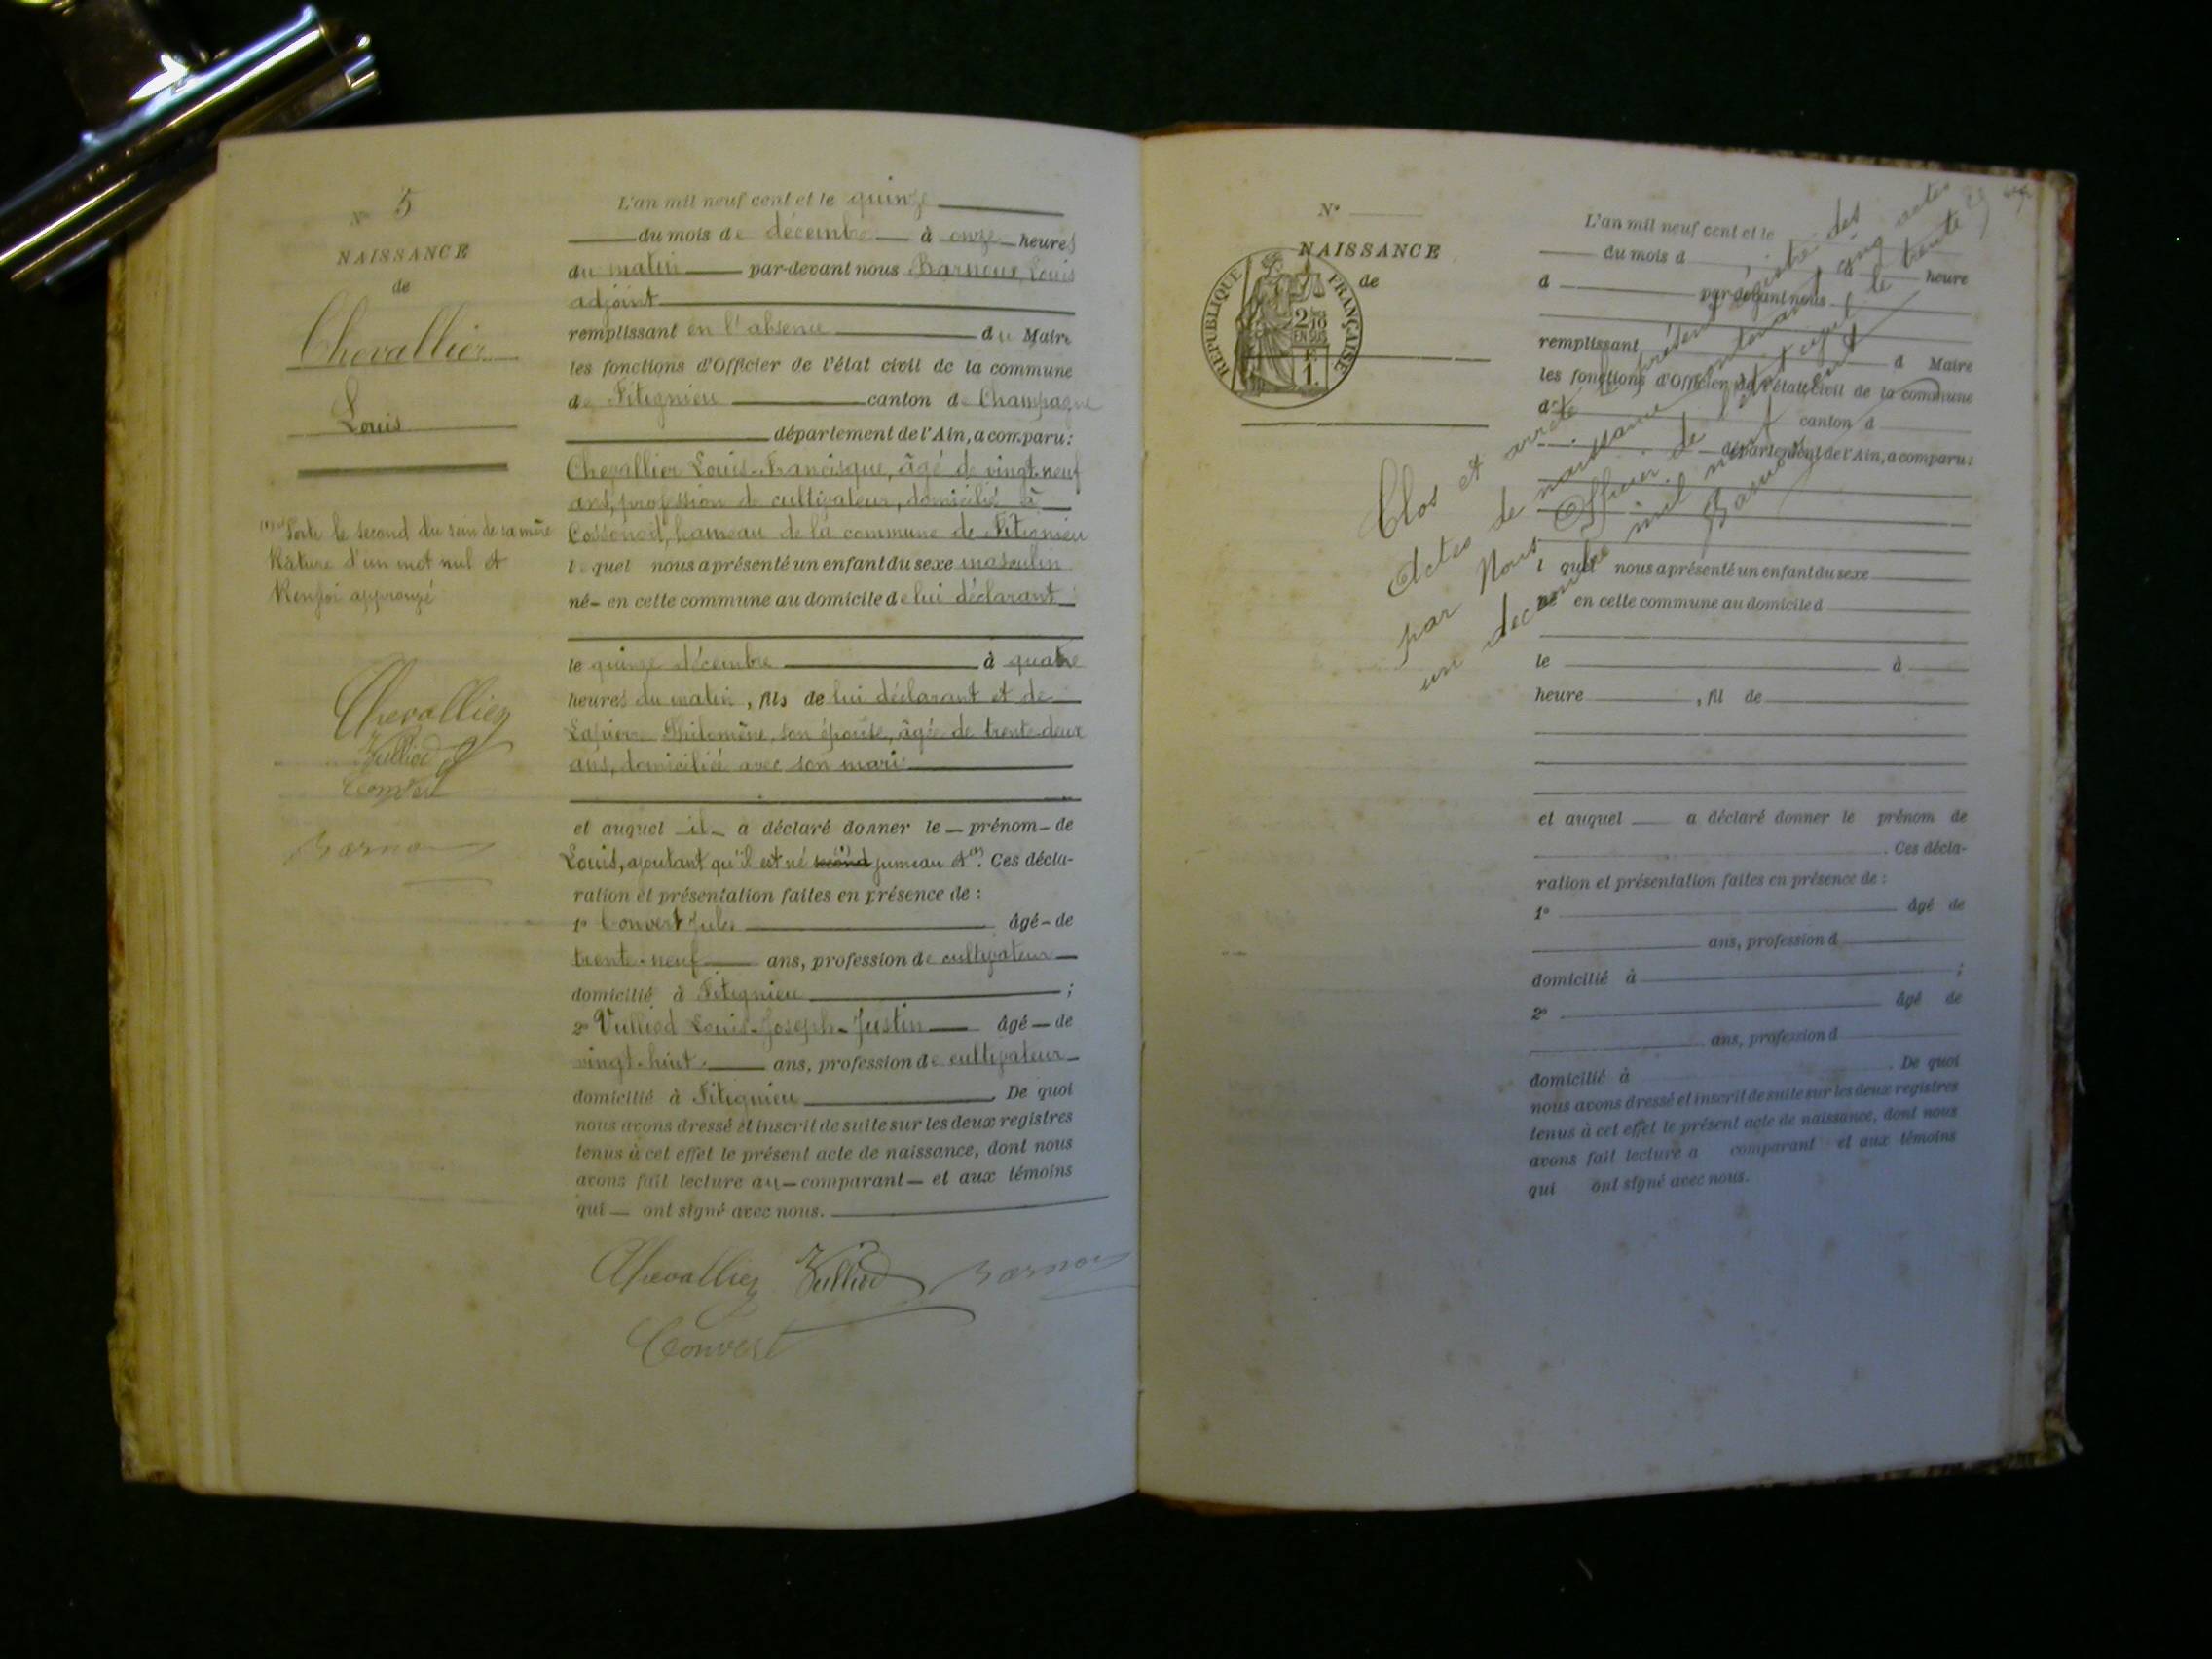 N° 5
NAISSANCE
de
Chevallier
Louis
(1) Sorti le second du sein de sa mère
Râture d'un mot nul et
Renvoi approuvé
Chevallier
Vulliod
Convert
Barnou
L'an mil neuf cent et le quinze
du mois de décembre à onze heures
du matin par-devant nous Barnoux Louis
adjoint
remplissant en l'absence du Maire
les fonctions d'Officier de l'état civil de la commune
de Fitignieu canton de Champagne
département de l'Ain, a comparu:
Chevallier Louis-Francisque, âgé de vingt-neuf
ans, profession de cultivateur, domicilié à
Cossonod, hameau de la commune de Fitignieu
lequel nous a présenté un enfant du sexe masculin
né en cette commune au domicile de lui déclarant
le quinze décembre à quatre
heures du matin, fils de lui déclarant et de
Lapierre Philomène, son épouse, âgée de trente-deux
ans, domiciliée avec son mari
et auquel il a déclaré donner le prénom de
Louis, ajoutant qu'il est né second jumeau et (1). Ces décla-
ration et présentation faites en présence de :
1° Convert Jules âgé de
trente-neuf ans, profession de cultivateur
domicilié à Fitignieu ;
2° Vulliod Louis-Joseph-Justin âgé de
vingt-huit ans, profession de cultivateur
domicilié à Fitignieu. De quoi
nous avons dressé et inscrit de suite sur les deux registres
tenus à cet effet le présent acte de naissance, dont nous
avons fait lecture au comparant et aux témoins
qui ont signé avec nous.
Chevallier Vulliod Barnou
Convert
N°
NAISSANCE
de
RÉPUBLIQUE FRANÇAISE
2/10
EN SUS
1.
L'an mil neuf cent et le
du mois d à heure
d par-devant nous
remplissant d Maire
les fonctions d'Officier de l'état civil de la commune
d canton d
département de l'Ain, a comparu:
l quel nous a présenté un enfant du sexe
né en cette commune au domicile d
le à
heure , fil de
et auquel a déclaré donner le prénom de
. Ces décla-
ration et présentation faites en présence de :
1° âgé de
ans, profession d
domicilié à ;
2° âgé de
ans, profession d
domicilié à . De quoi
nous avons dressé et inscrit de suite sur les deux registres
tenus à cet effet le présent acte de naissance, dont nous
avons fait lecture a comparant et aux témoins
qui ont signé avec nous.
Clos et arrêté le présent registre des
actes de naissance contenant cinq actes
par Nous Officier de l'état civil le trente
un décembre mil neuf cent